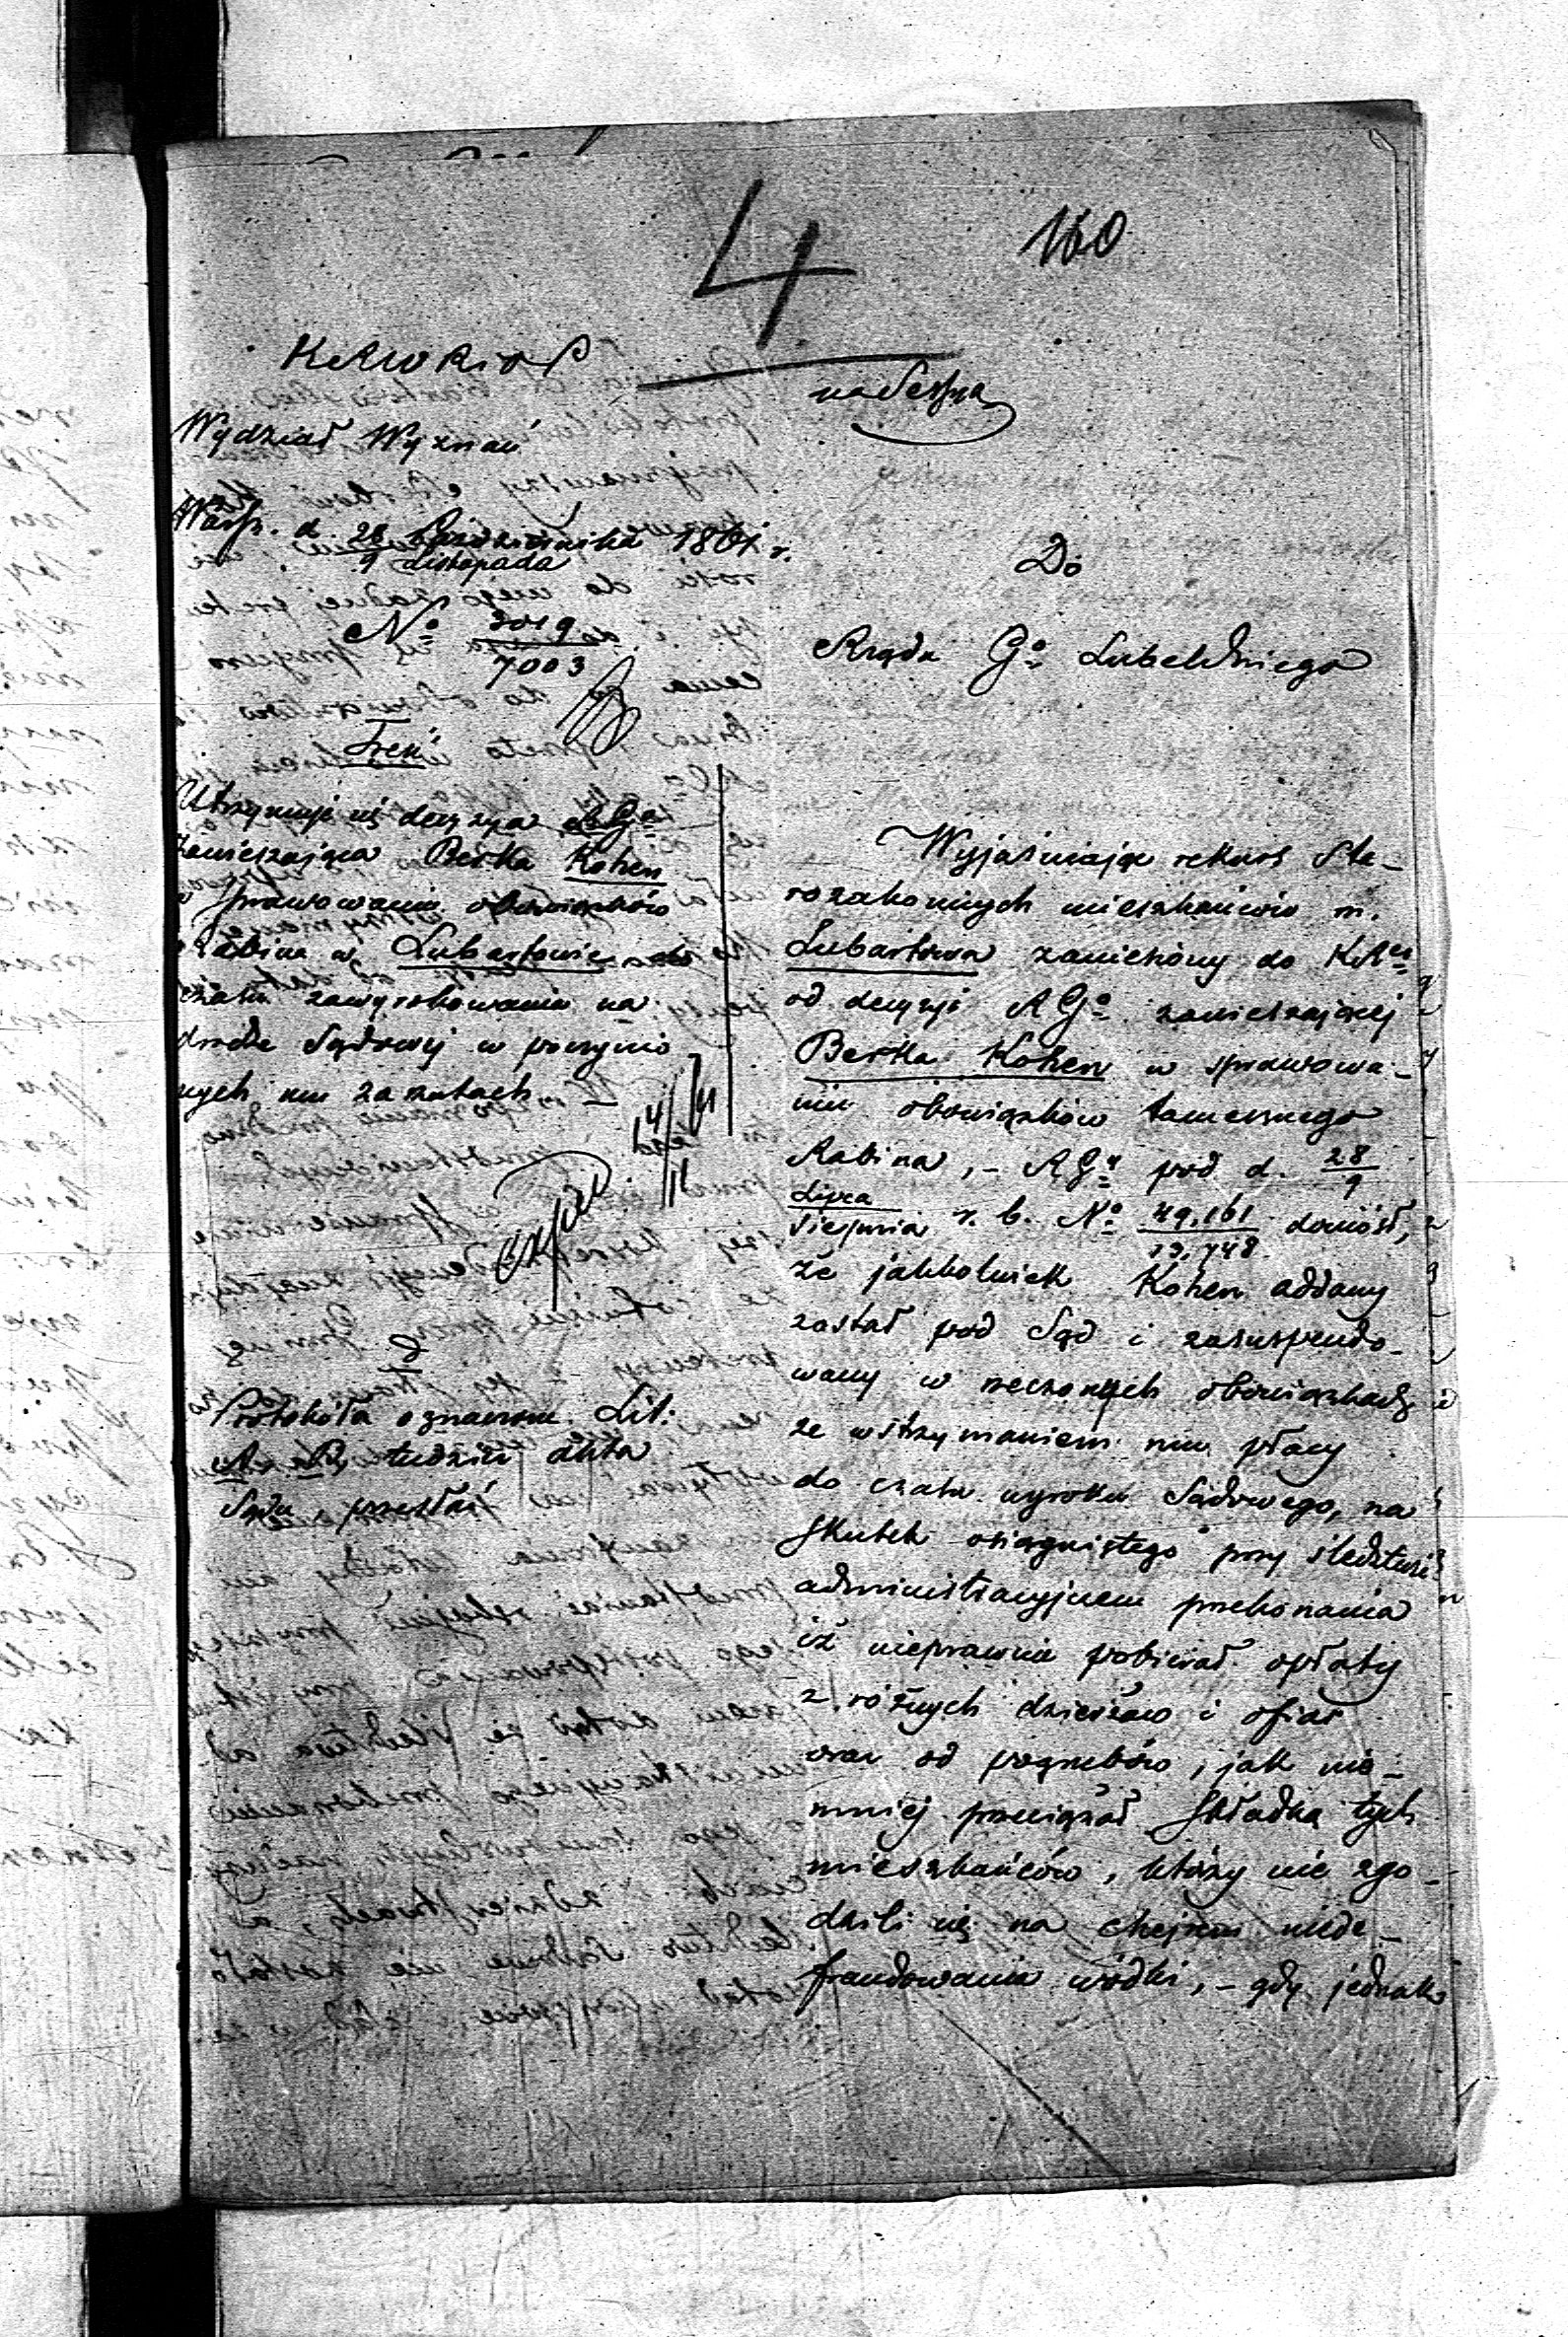 4
160
KRWRiOP
na Sessya
Wydział Wyznań
Warsz. d. 28 Października 1861 r.
9 Listopada
No 2019
7003
Treść
Utrzymuje się decyzya RGo
zawieszająca Berka Kohen
w sprawowaniu obowiązków
Rabina w Lubartowie do
czasu zawyrokowania na
drodze Sądowej w poczynio
nych mu zarzutach
14/11
exped
Protokóła oznaczone Lit:
A. B. tudzież akta
Sądu przesłać
Do
Rządu Go Lubelskiego
Wyjaśniając rekurs Sta-
rozakonnych mieszkańców m.
Lubartowa zaniesiony do KR
od decyzyi RGo zawieszającej
Berka Kohen w sprawowa-
niu obowiązków tamecznego
Rabina, - RGy pod d. 28
9
Lipca
Sierpnia r. b. No 49,161 doniósł,
19,748
że jakkolwiek Kohen oddany
został pod Sąd i zasuspendo-
wany w rzeczonych obowiązkach
ze wstrzymaniem mu płacy
do czasu wyroku Sądowego, na
skutek osiągniętego przy śledztwie
administracyjnem przekonania
iż nieprawnie pobierał opłaty
z różnych dzierżaw i ofiar
oraz od pogrzebów, jak nie-
mniej przeciążał składką tych
mieszkańców, którzy nie zgo-
dzili się na chejrem niede-
fraudowania wódki, - gdy jednak